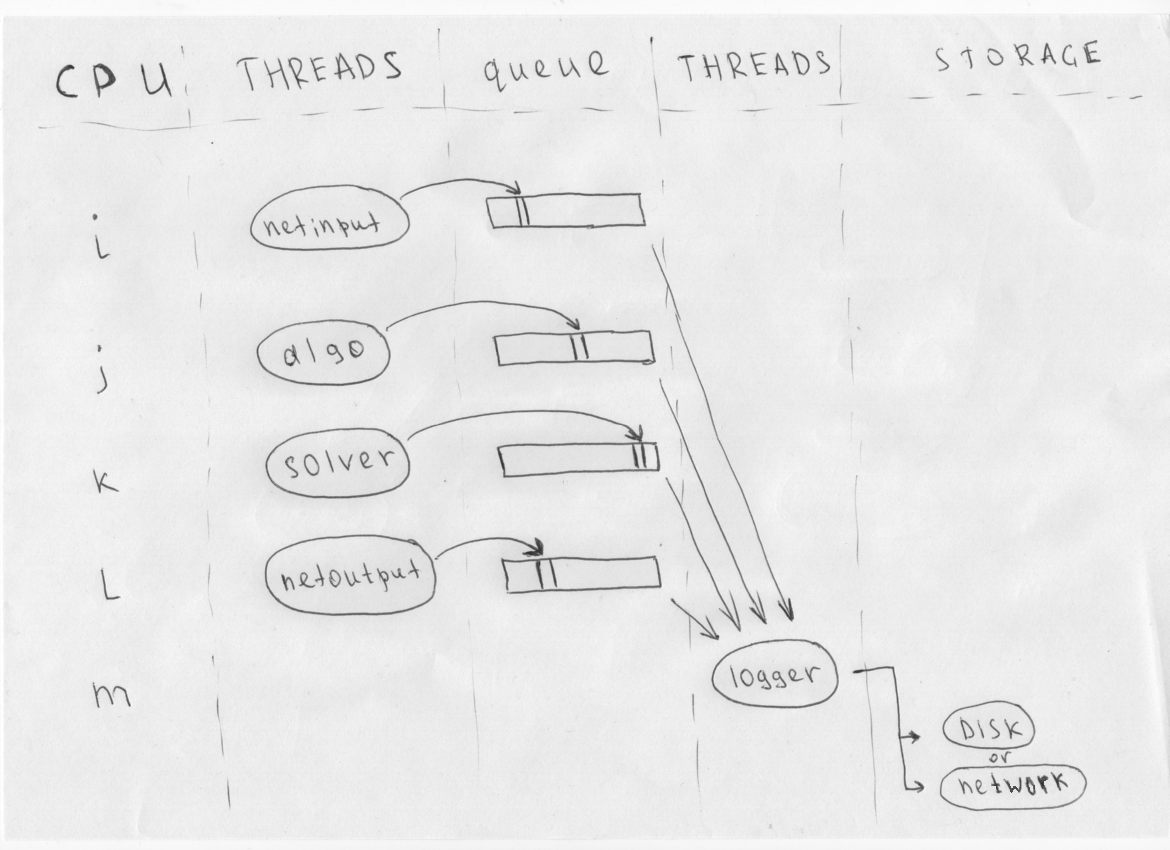 CPU THREADS queue THREADS STORAGE
i netinput
j algo
k solver
L netoutput
m logger
DISK
or
network